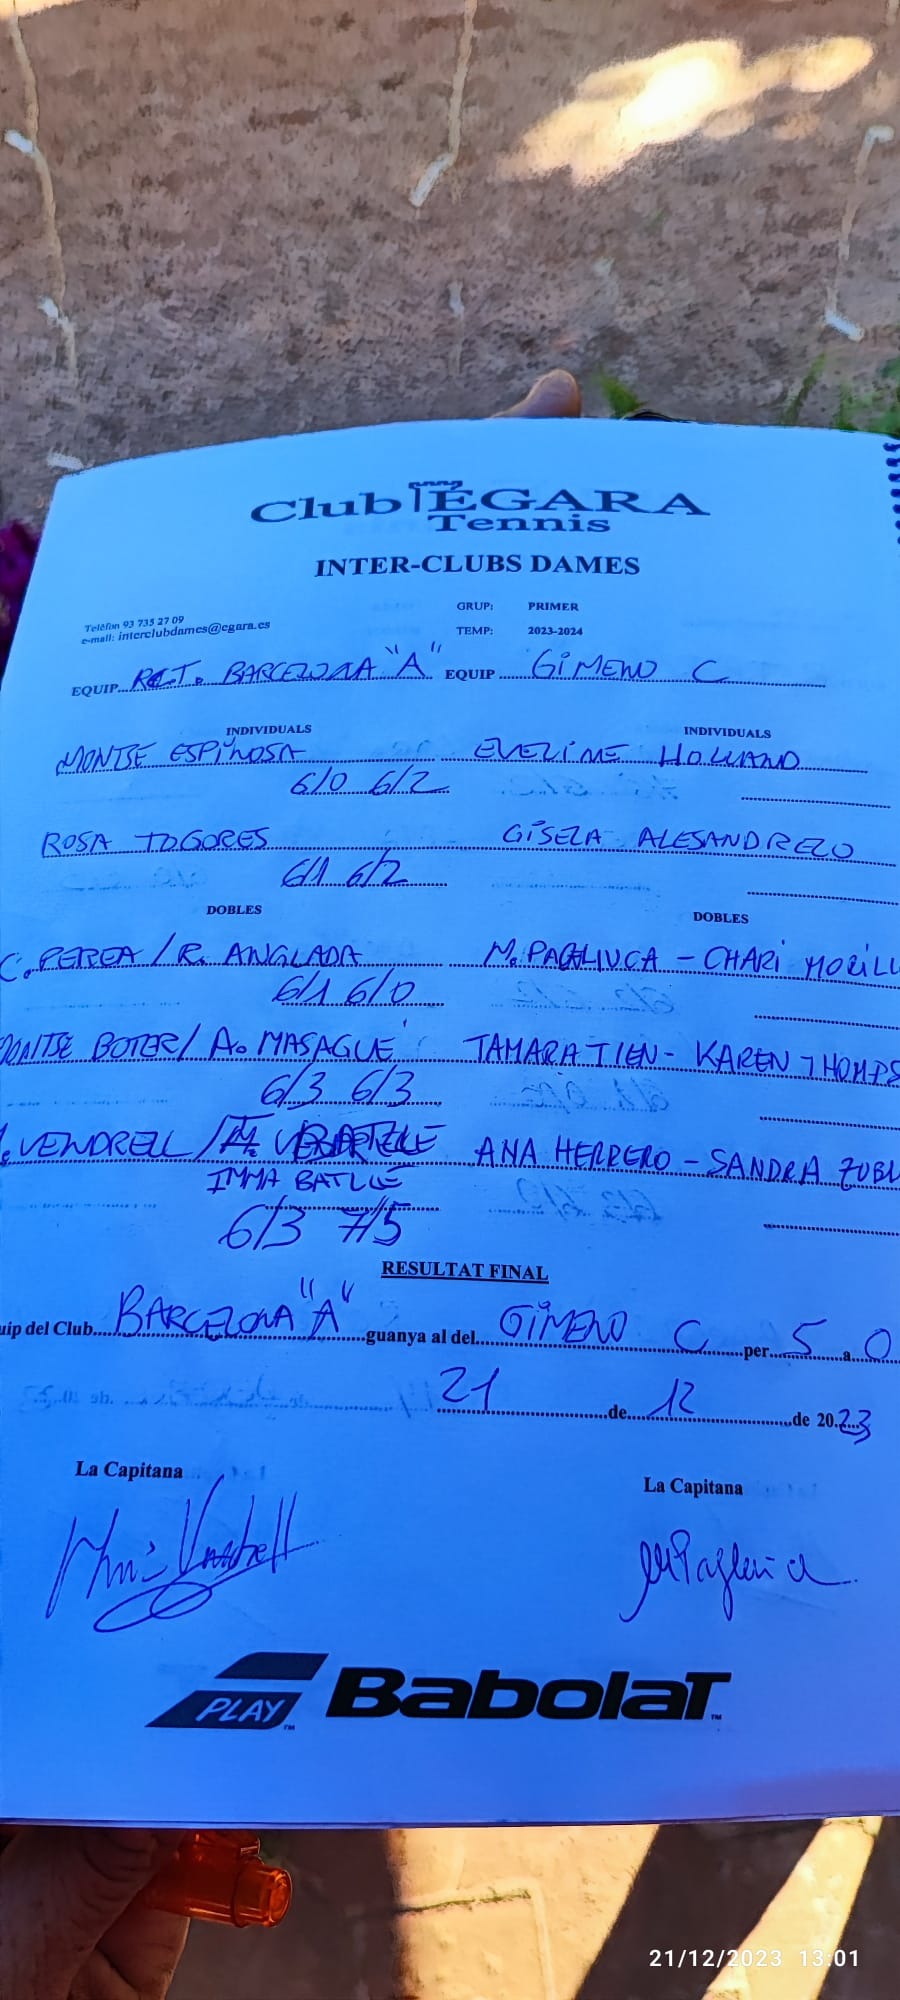 Club ÈGARA
Tennis
INTER-CLUBS DAMES
Telèfon 93 735 27 09
e-mail: interclubdames@egara.es
GRUP: PRIMER
TEMP: 2023-2024
EQUIP RCT. BARCELONA "A" EQUIP GIMENO C
INDIVIDUALS INDIVIDUALS
MONTSE ESPINOSA EVELINE HOLLAND
6/0 6/2
ROSA TOGORES GISELA ALESANDRELO
6/1 6/2
DOBLES DOBLES
C. PEREA / R. ANGLADA M. PAGLIUCA - CHARI MORILL
6/1 6/0
ONTSE BOTER / A. MASAGUÉ TAMARA TIEN - KAREN THOMPS
6/3 6/3
. VENDRELL / ANA HERRERO - SANDRA ZUBL
IMMA BATLLE
6/3 7/5
RESULTAT FINAL
uip del Club BARCELONA "A" guanya al del GIMENO C per 5 a 0
21 de 12 de 2023
La Capitana La Capitana
PLAY BabolaT
21/12/2023 13:01